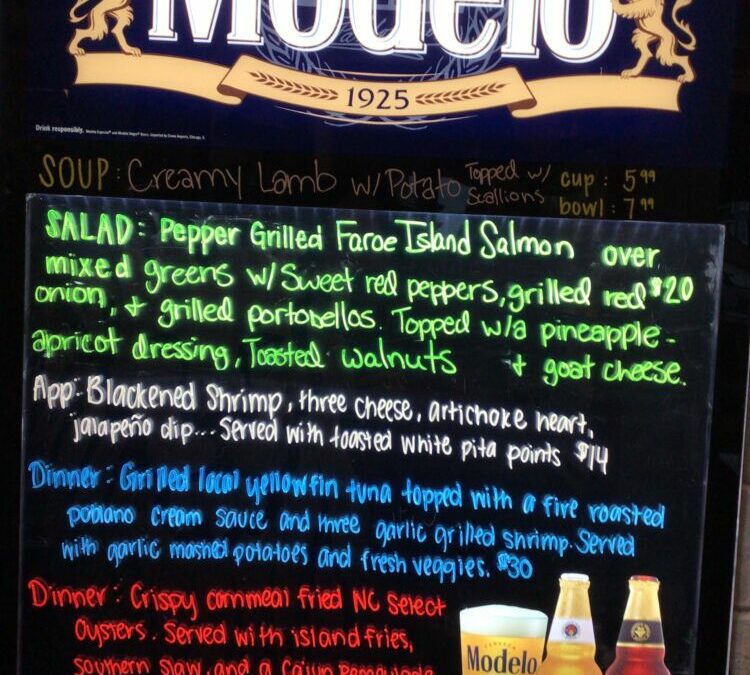 Modelo
1925
Drink responsibly.
SOUP: Creamy Lamb w/ Potato Topped w/ Scallions cup: 5.99
bowl: 7.99
SALAD: Pepper Grilled Faroe Island Salmon over
mixed greens w/ Sweet red peppers, grilled red $20
onion, + grilled portobellos. Topped w/a pineapple-
apricot dressing, Toasted walnuts + goat cheese.
App: Blackened Shrimp, three cheese, artichoke heart,
jalapeño dip... Served with toasted white pita points $14
Dinner: Grilled local yellowfin tuna topped with a fire roasted
poblano cream sauce and three garlic grilled shrimp. Served
with garlic mashed potatoes and fresh veggies. $30
Dinner: Crispy cornmeal fried NC Select
Oysters. Served with island fries,
southern slaw, and a Cajun Remoulade
CERVEZA
Modelo